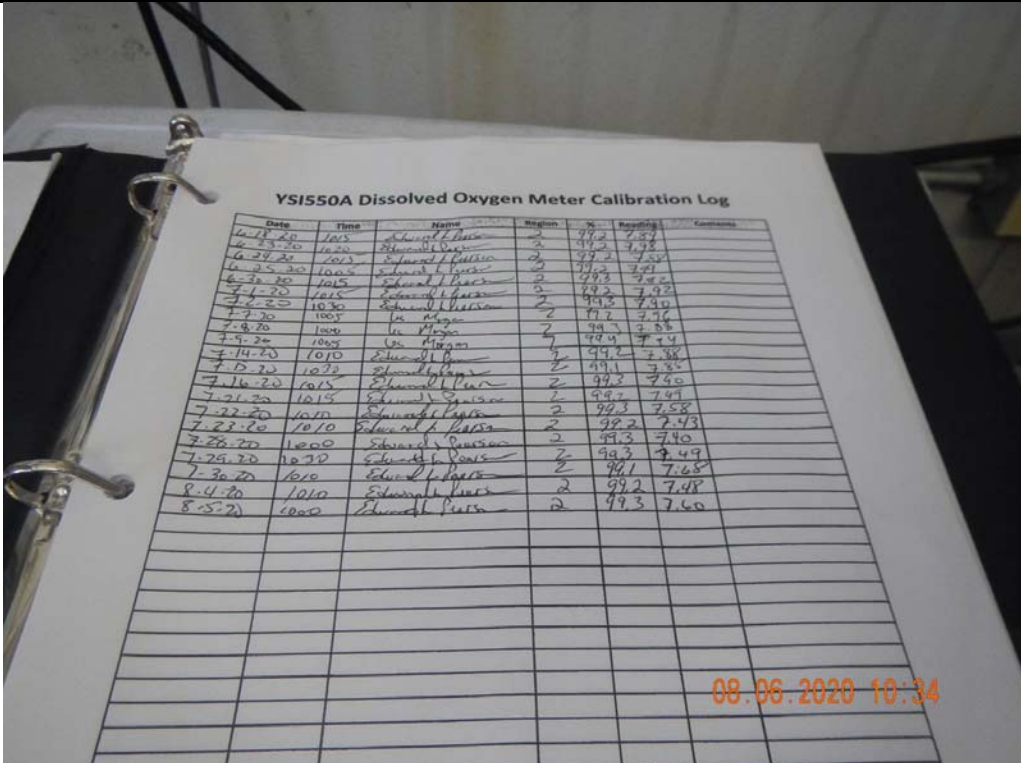 YSI550A Dissolved Oxygen Meter Calibration Log
Date Time Name Region % Reading Comments
6-18-20 1015 Edward L Pearson 2 99.2 7.89
6-23-20 1020 Edward L Pearson 2 99.2 7.98
6-24-20 1015 Edward L Pearson 2 99.2 7.88
6-25-20 1005 Edward L Pearson 2 99.2
6-30-20 1015 Edward L Pearson 2 99.3
7-1-20 1015 Edward L Pearson 2 99.2 7.92
7-2-20 1030 Edward L Pearson 2 99.3 7.90
7-7-20 1005 Les Morgan 2 99.2 7.76
7-8-20 1000 Les Morgan 2 99.3 7.88
7-9-20 1005 Les Morgan 2 99.4
7-14-20 1010 Edward L 2 99.2 7.88
7-15-20 1030 2 99.1 7.85
7-16-20 1015 Edward L Pearson 2 99.3 7.40
7-21-20 1015 Edward L Pearson 2 99.2 7.49
7-22-20 1010 Edward L Pearson 2 99.3 7.58
7-23-20 1010 Edward L Pearson 2 99.2 7.43
7-28-20 1000 Edward L Pearson 2 99.3 7.40
7-29-20 1030 Edward L Pearson 2 99.3 7.49
7-30-20 1010 Edward L Pearson 2 99.1 7.68
8-4-20 1010 Edward L Pearson 2 99.2 7.48
8-5-20 1000 Edward L Pearson 2 99.3 7.60
08.06.2020 10:34